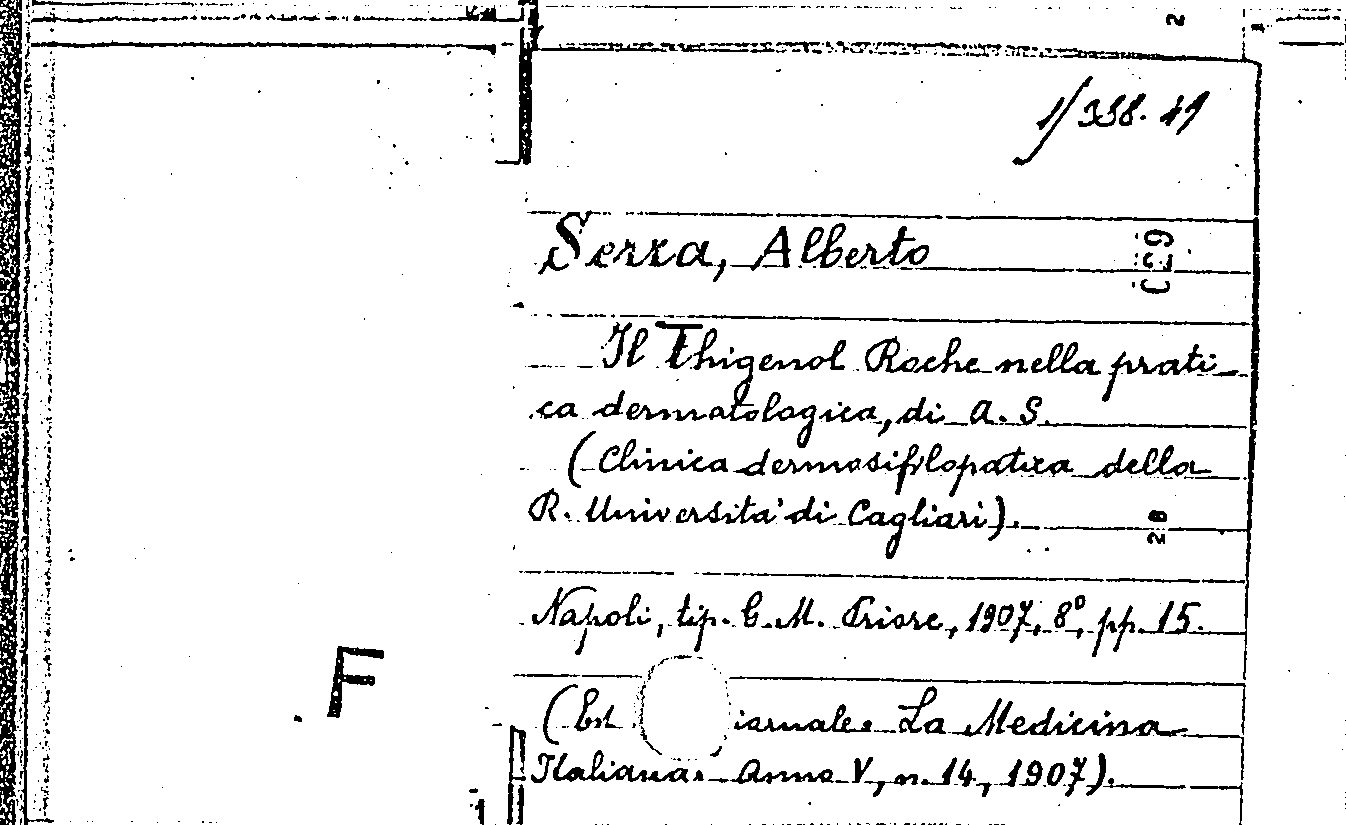 1/338.49
Serra, Alberto
Il Thigenol Roche nella prati-
ca dermatologica, di A. S.
(Clinica dermosifilopatica della
R. Università di Cagliari).
28
Napoli, tip. G. M. Priore, 1907, 8°, pp. 15.
F
(Est iornale. La Medicina
Italiana. Anno V, n. 14, 1907).